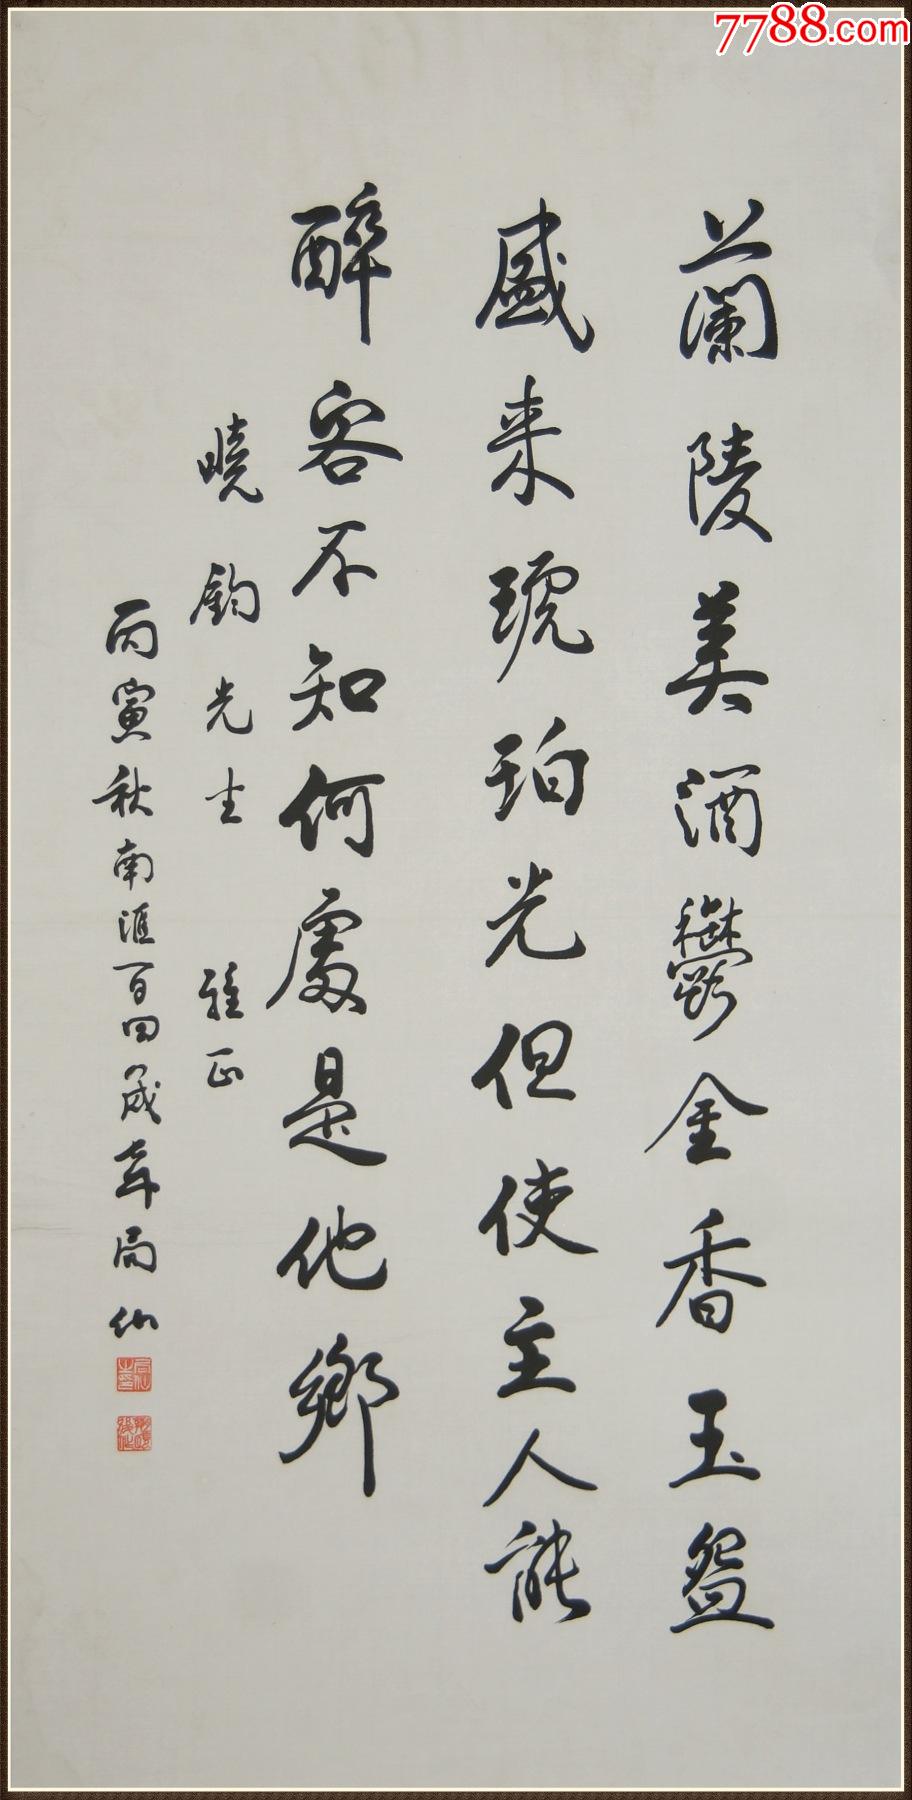 7788.com
蘭陵美酒鬱金香玉盌
盛来琥珀光但使主人能
醉客不知何處是他鄉
曉鈞先生 雅正
丙寅秋南滙百四歲蘇局仙